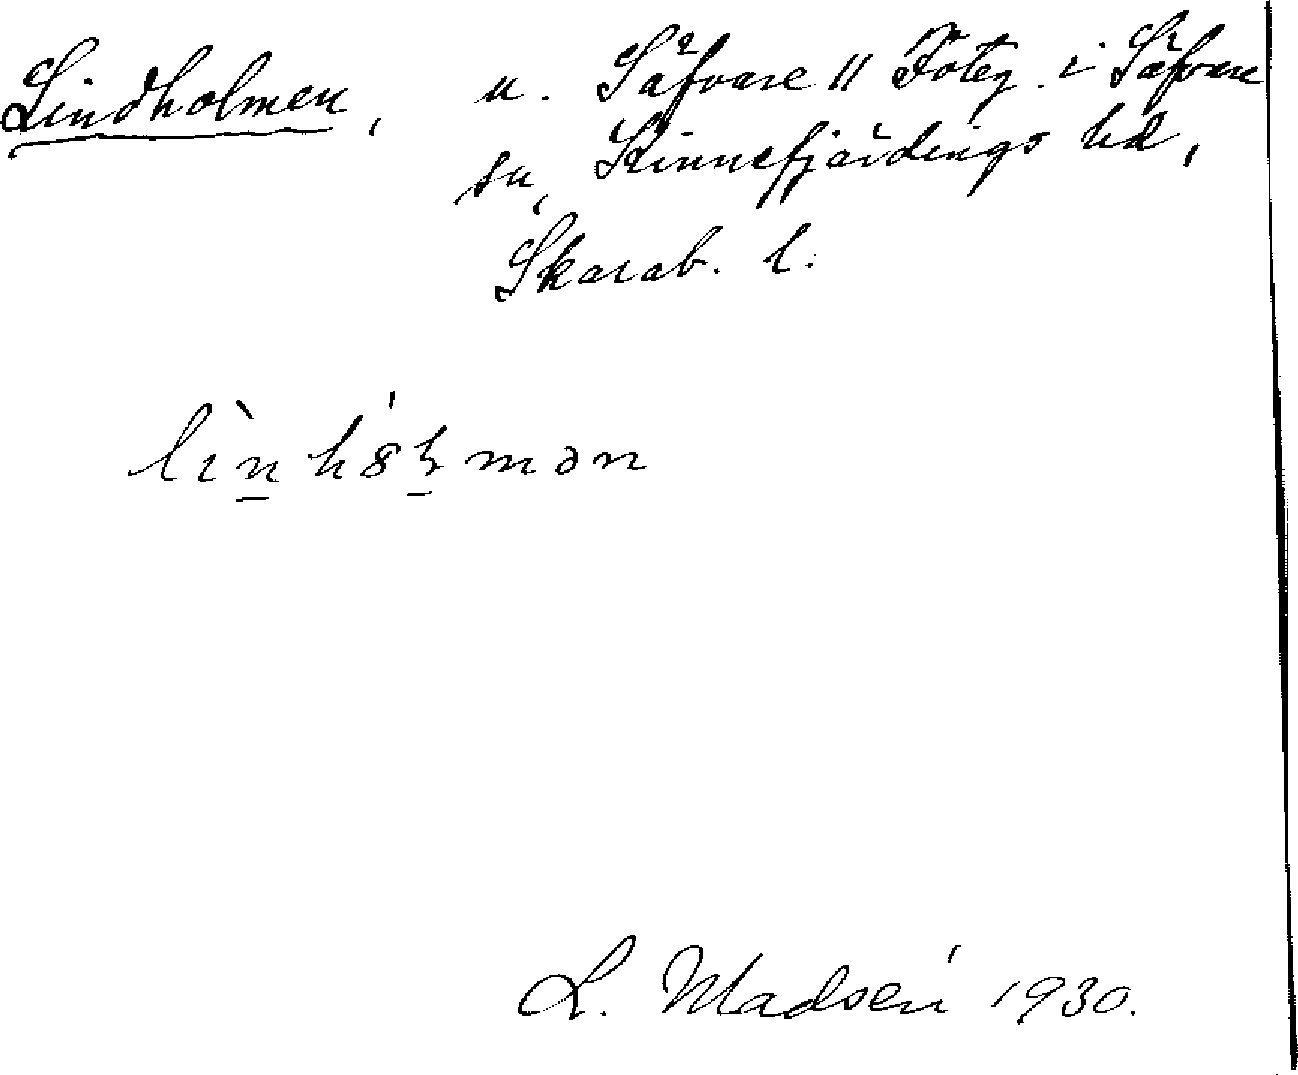 Lindholmen, u. Såfvare 11 Foteg. i Säfvare
sn, Kinnefjärdings hd,
Skarab. l.
L. Madsén 1930.